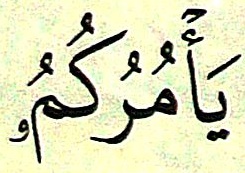 يَأۡمُرُكُمُۥ